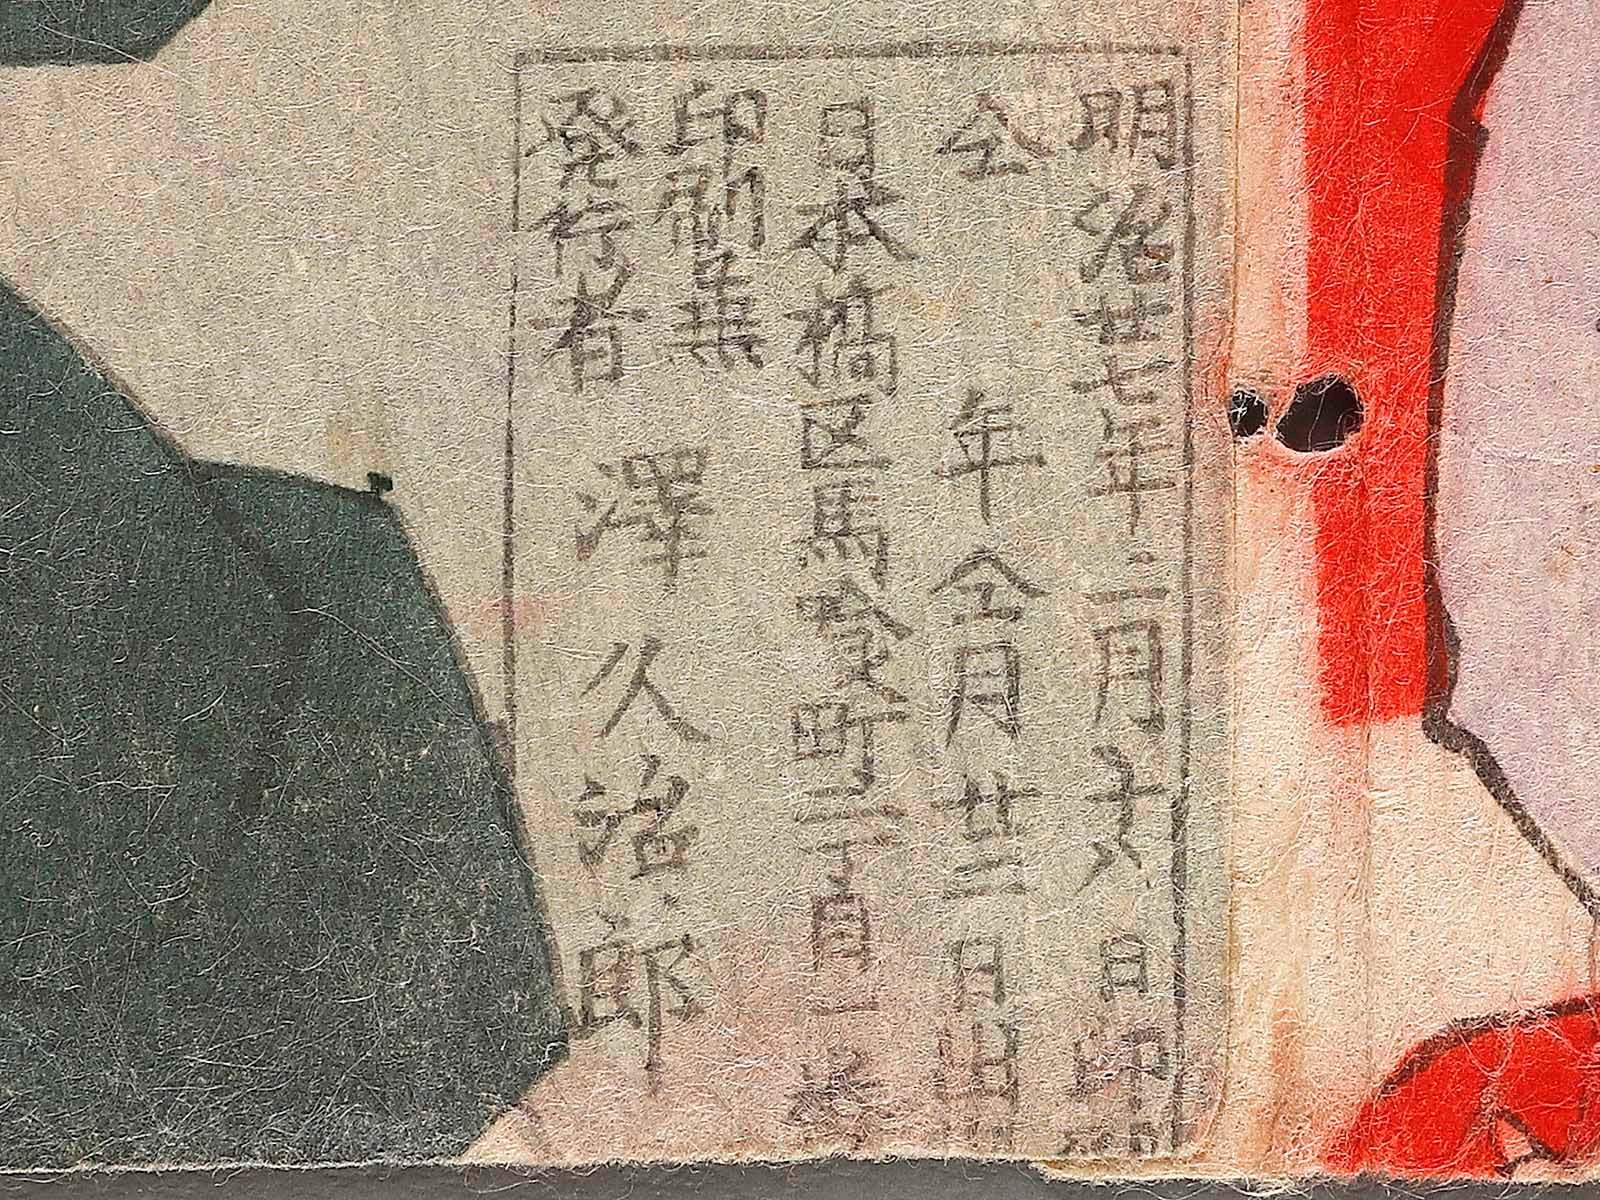 明治廿七年二月十八日印
仝年仝月廿二日出
日本橋区馬喰町二丁目一番
印刷兼
発行者 澤久治郎